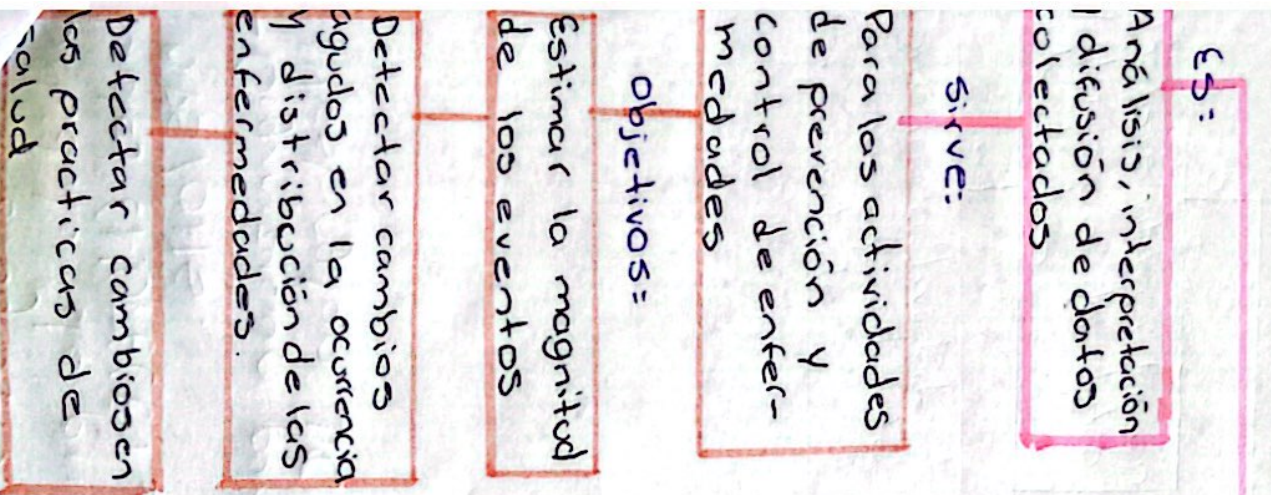 Es:
Análisis, interpretación
y difusión de datos
colectados
Sirve:
Para las actividades
de prevención y
control de enfer-
medades
Objetivos:
Estimar la magnitud
de los eventos
Detectar cambios
agudos en la ocurrencia
y distribución de las
enfermedades.
Detectar cambios en
las practicas de
salud